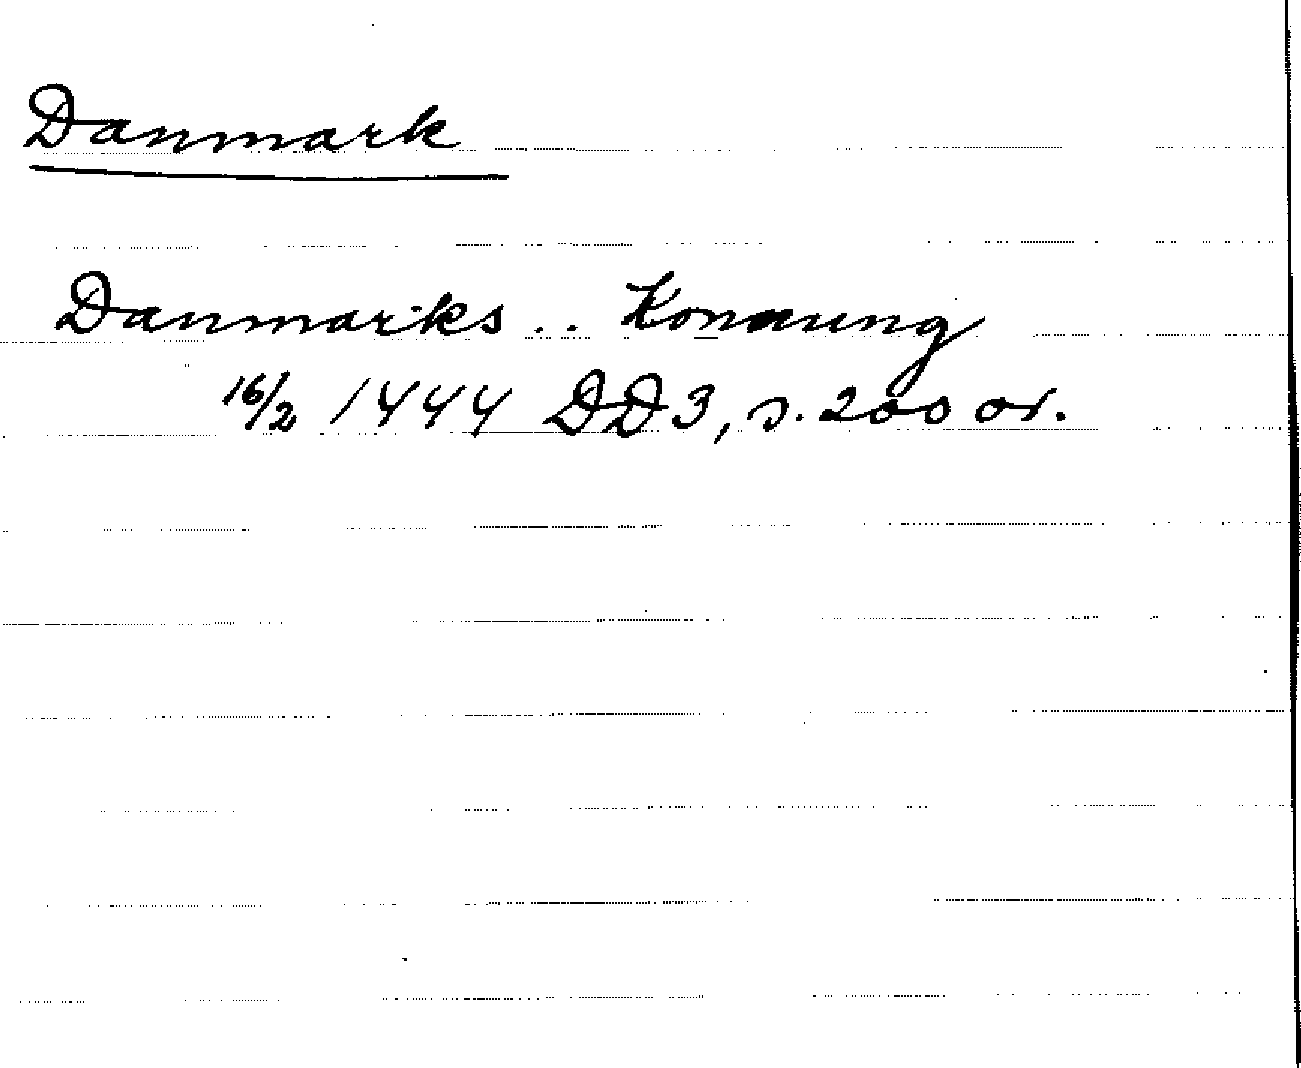 Danmark
Danmarks .. Konnung
16/2 1444 DD3, s. 200 or.